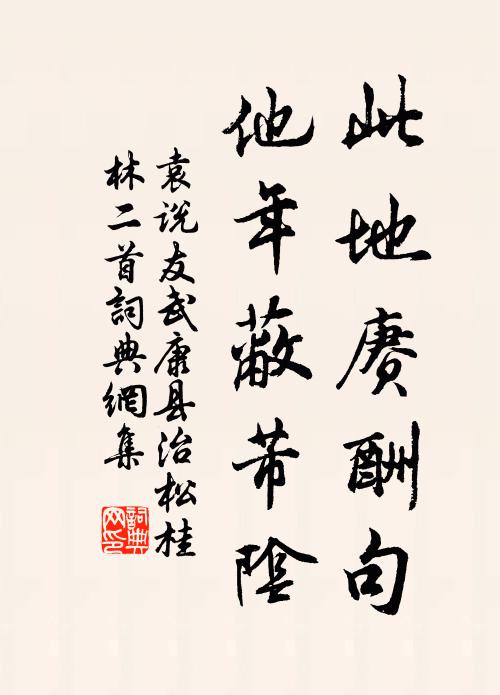 此地赓酬句
他年蔽芾陰
袁说友武康县治松桂
林二首詞典網集
詞典
网印